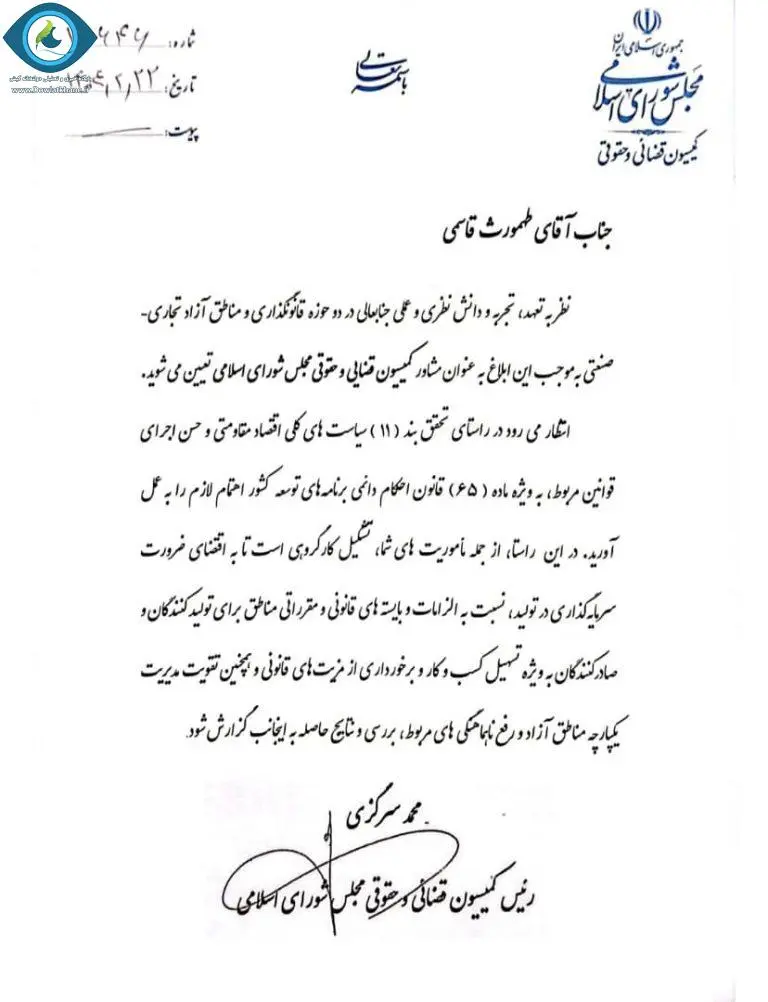 جمهوری اسلامی ایران
مجلس شورای اسلامی
کمیسیون قضائی و حقوقی
باسمه تعالی
شماره:
تاریخ:
پیوست:
www.Dowlatkhane.ir
جناب آقای طهمورث قاسمی
نظر به تعهد، تجربه و دانش نظری و عملی جنابعالی در دو حوزه قانونگذاری و مناطق آزاد تجاری-
صنعتی به موجب این ابلاغ به عنوان مشاور کمیسیون قضایی و حقوقی مجلس شورای اسلامی تعیین می شوید.
انتظار می رود در راستای تحقق بند (۱۱) سیاست های کلی اقتصاد مقاومتی و حسن اجرای
قوانین مربوط، به ویژه ماده (۶۵) قانون احکام دائمی برنامه های توسعه کشور اهتمام لازم را به عمل
آورید. در این راستا، از جمله مأموریت های شما، تشکیل کارگروهی است تا به اقتضای ضرورت
سرمایه گذاری در تولید، نسبت به الزامات و بایسته های قانونی و مقرراتی مناطق برای تولیدکنندگان و
صادرکنندگان به ویژه تسهیل کسب و کار و برخورداری از مزیت های قانونی و همچنین تقویت مدیریت
یکپارچه مناطق آزاد و رفع ناهماهنگی های مربوط، بررسی و نتایج حاصله به اینجانب گزارش شود.
محمد سرگزی
رئیس کمیسیون قضائی و حقوقی مجلس شورای اسلامی